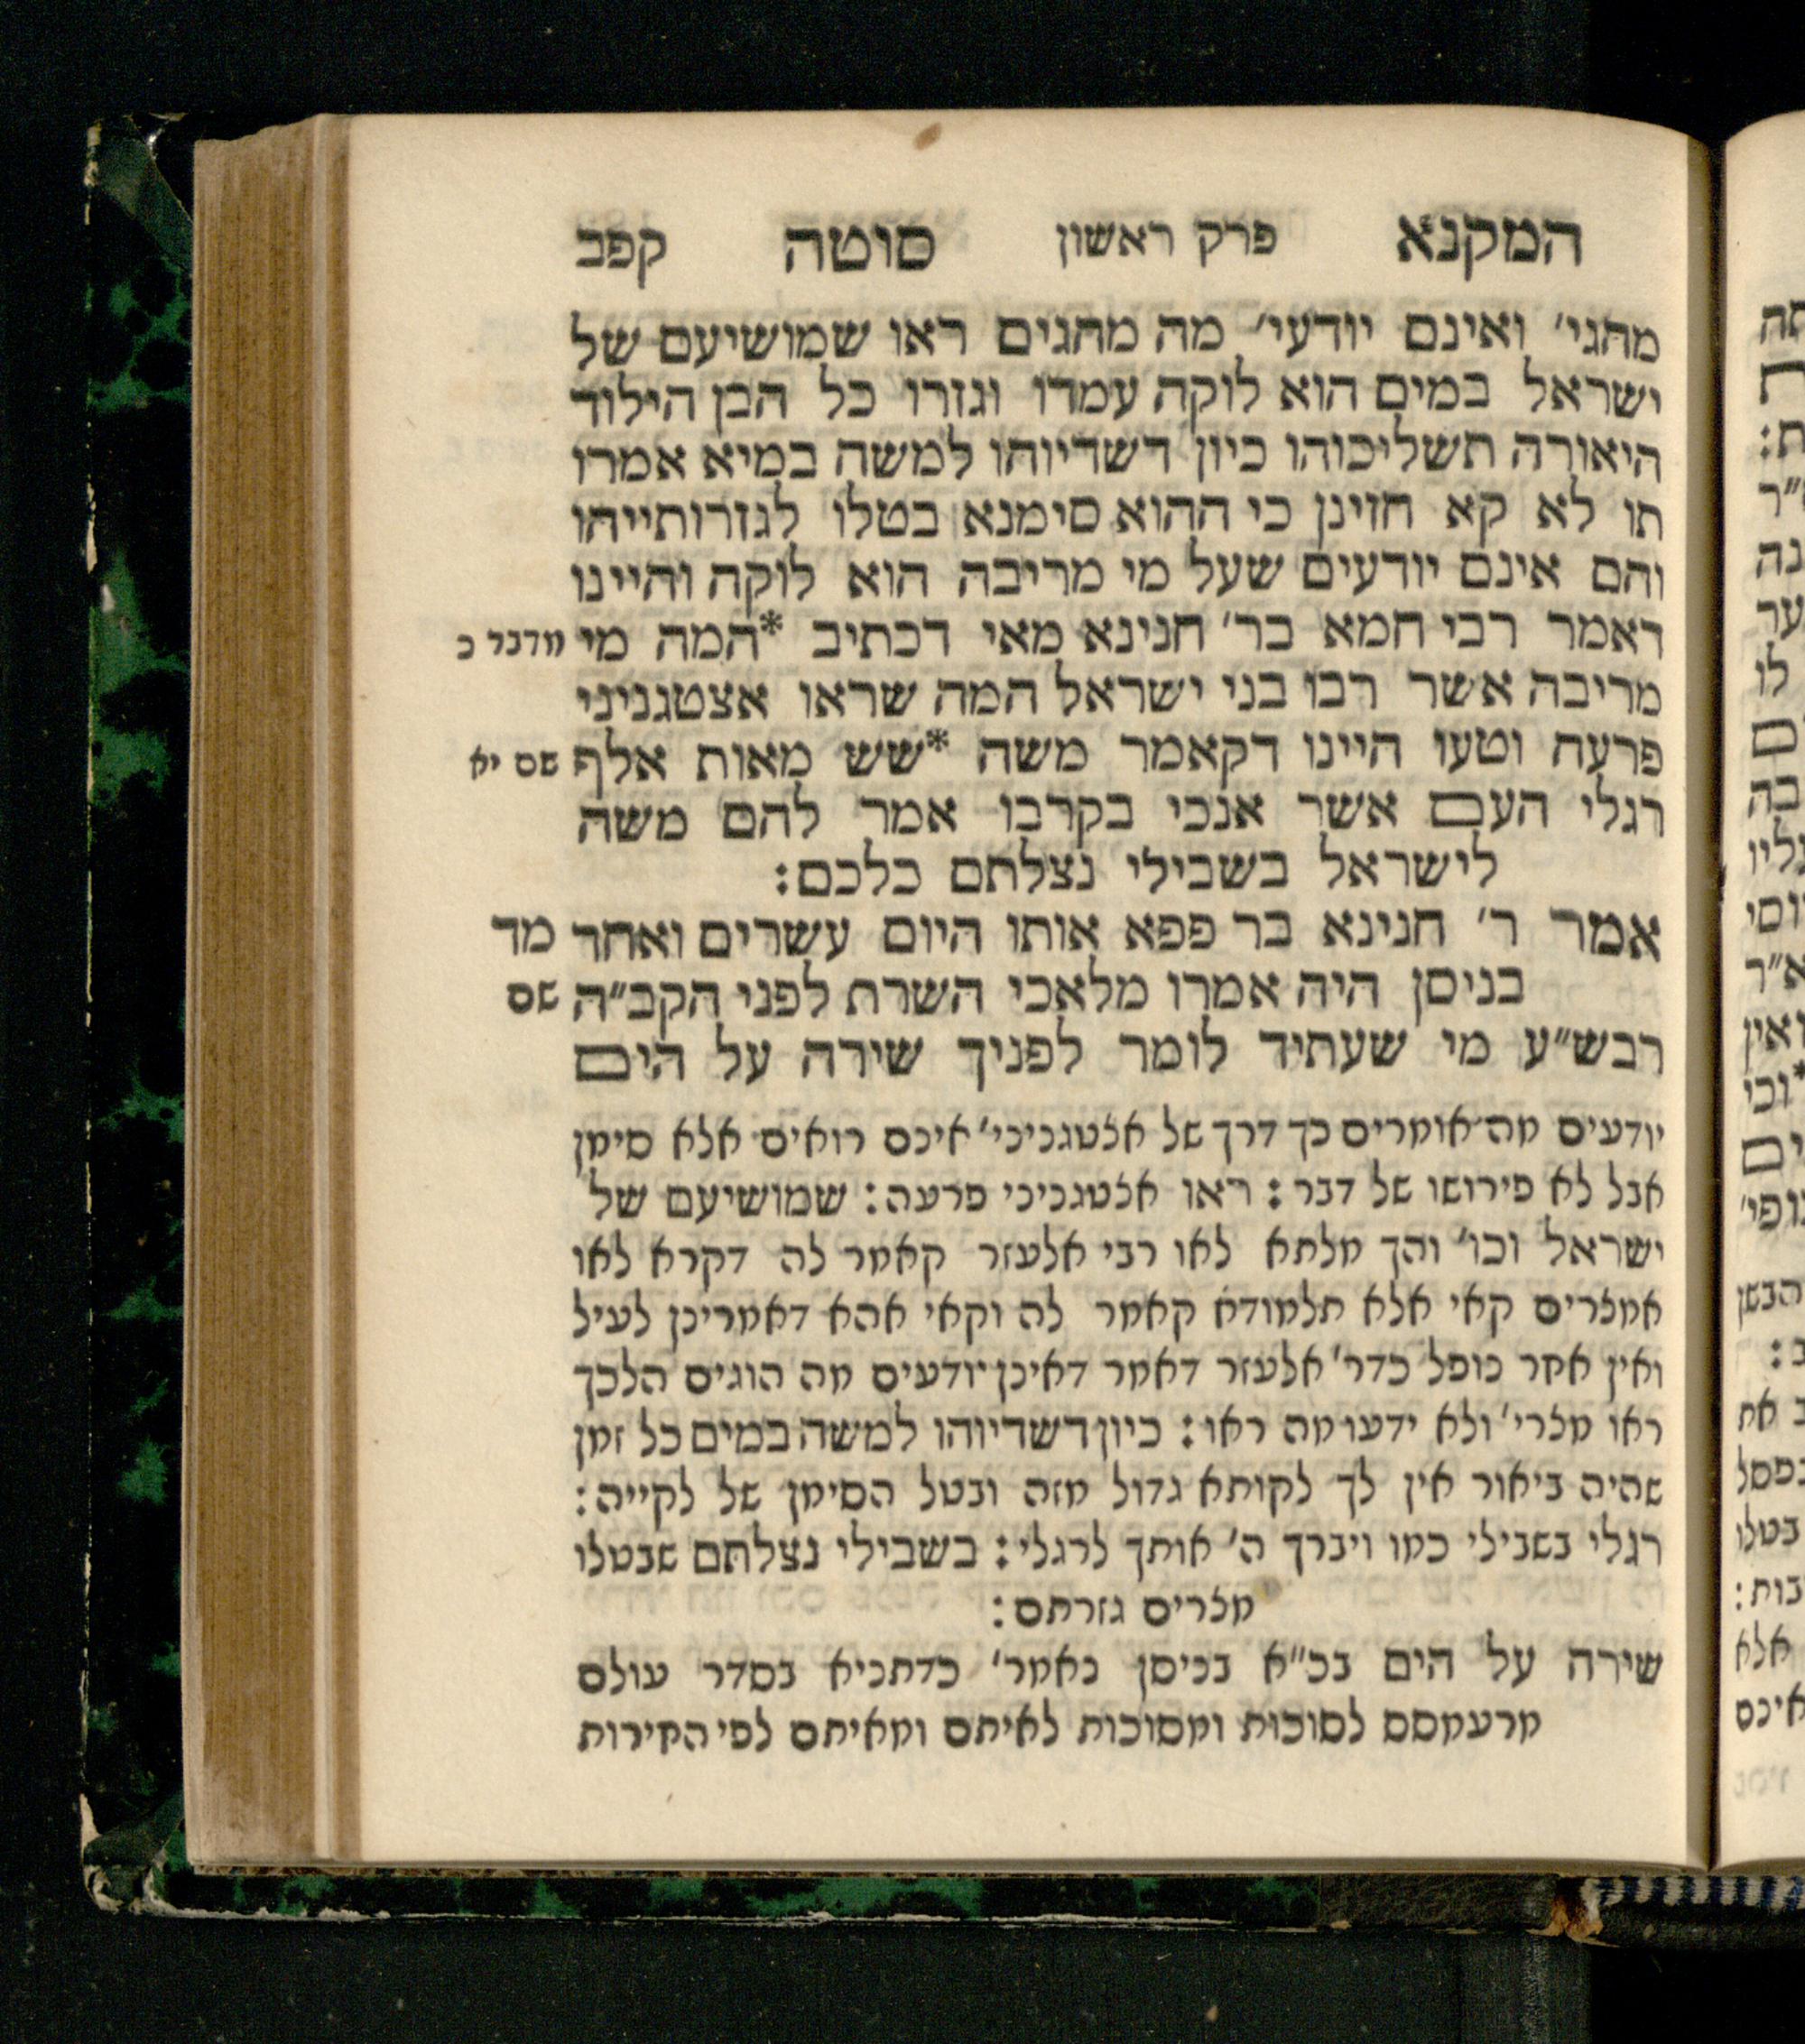 המקנא פרק ראשון סוטה קפב
מהגי׳ ואינם יודעי׳ מה מהגים ראו שמושיעם של
ישראל במים הוא לוקה עמדו וגזרו כל הבן הילוד
היאורה תשליכוהו כיון דשדיוהו למשה במיא אמרו
תו לא קא חזינן כי ההוא סימנא בטלו לגזרותייהו
והם אינם יודעים שעל מי מריבה הוא לוקה והיינו
דאמר רבי חמא בר׳ חנינא מאי דכתיב *המה מי מדבר כ
מריבה אשר רבו בני ישראל המה שראו אצטגניני
פרעה וטעו היינו דקאמר משה *שש מאות אלף שם יא
רגלי העם אשר אנכי בקרבו אמר להם משה
לישראל בשבילי נצלתם כלכם:
אמר ר׳ חנינא בר פפא אותו היום עשרים ואחד מד
בניסן היה אמרו מלאכי השרת לפני הקב״ה שם
רבש״ע מי שעתיד לומר לפניך שירה על הים
יודעים מה אומרים כך דרך של אצטגניני׳ אינם רואים אלא סימן
אבל לא פירושו של דבר: ראו אצטגניני פרעה: שמושיעם של
ישראל וכו׳ והך מלתא לאו רבי אלעזר קאמר לה דקרא לאו
אמצרים קאי אלא תלמודא קאמר לה וקאי אהא דאמרינן לעיל
ואין אחר נופל כדר׳ אלעזר דאמר דאינן יודעים מה הוגים הלכך
ראו מצרי׳ ולא ידעו מה ראו: כיון דשדיוהו למשה במים כל זמן
שהיה ביאור אין לך לקותא גדול מזה ובטל הסימן של לקייה:
רגלי בשבילי כמו ויברך ה׳ אותך לרגלי: בשבילי נצלתם שבטלו
מצרים גזרתם:
שירה על הים בכ״א בניסן נאמר׳ כדתניא בסדר עולם
מרעמסס לסוכות ומסוכות לאיתם ומאיתם לפי החירות